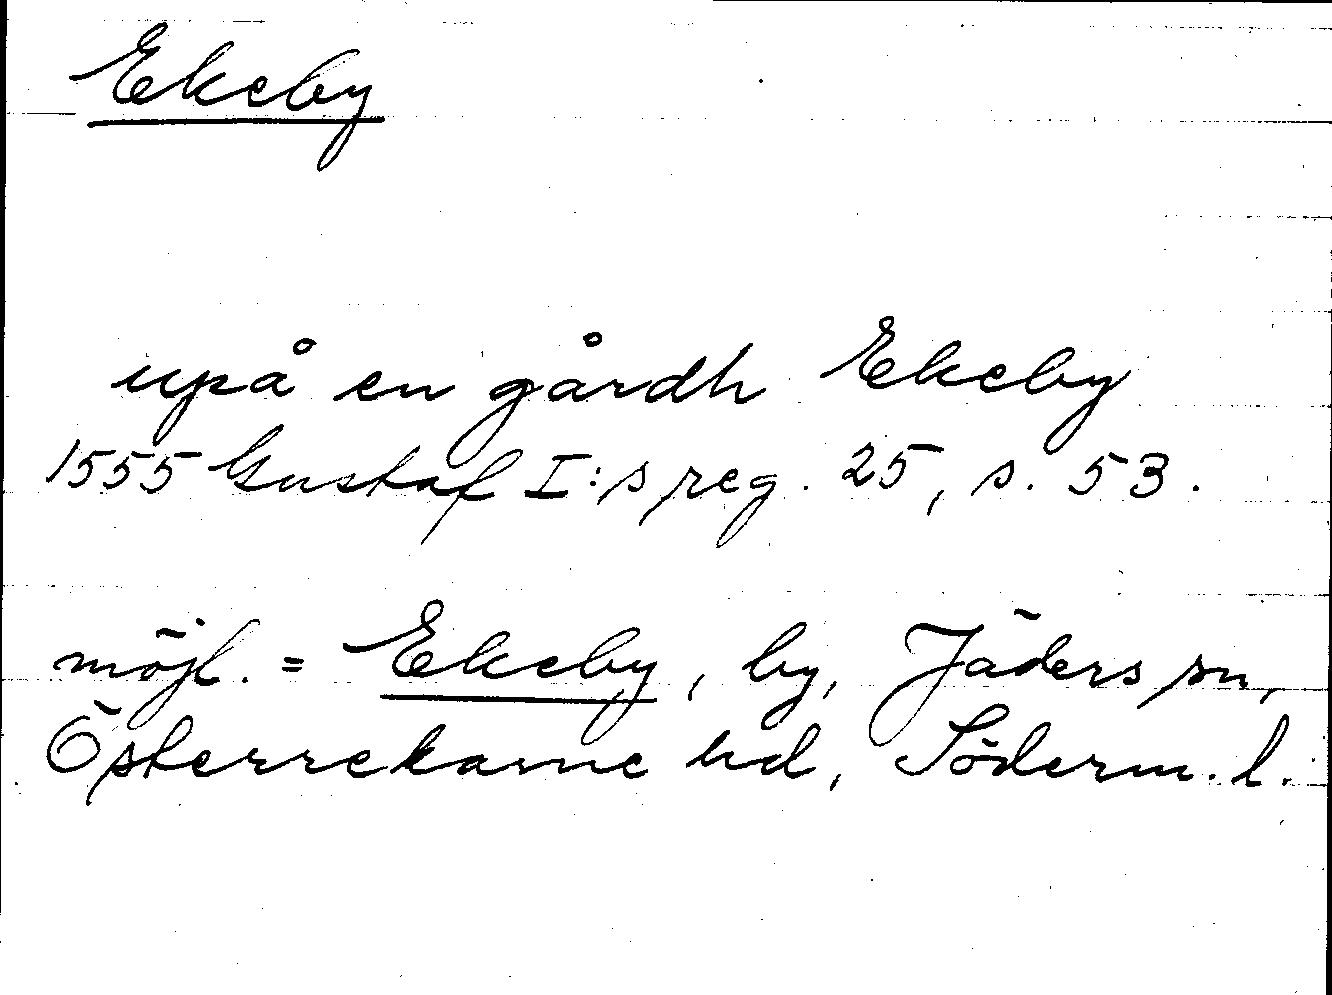 Ekeby
upå en gårdh Ekeby
1555 Gustaf I:s reg. 25, s. 53.
möjl. = Ekeby, by, Jäders sn,
Österrekarne hd, Söderm. l.